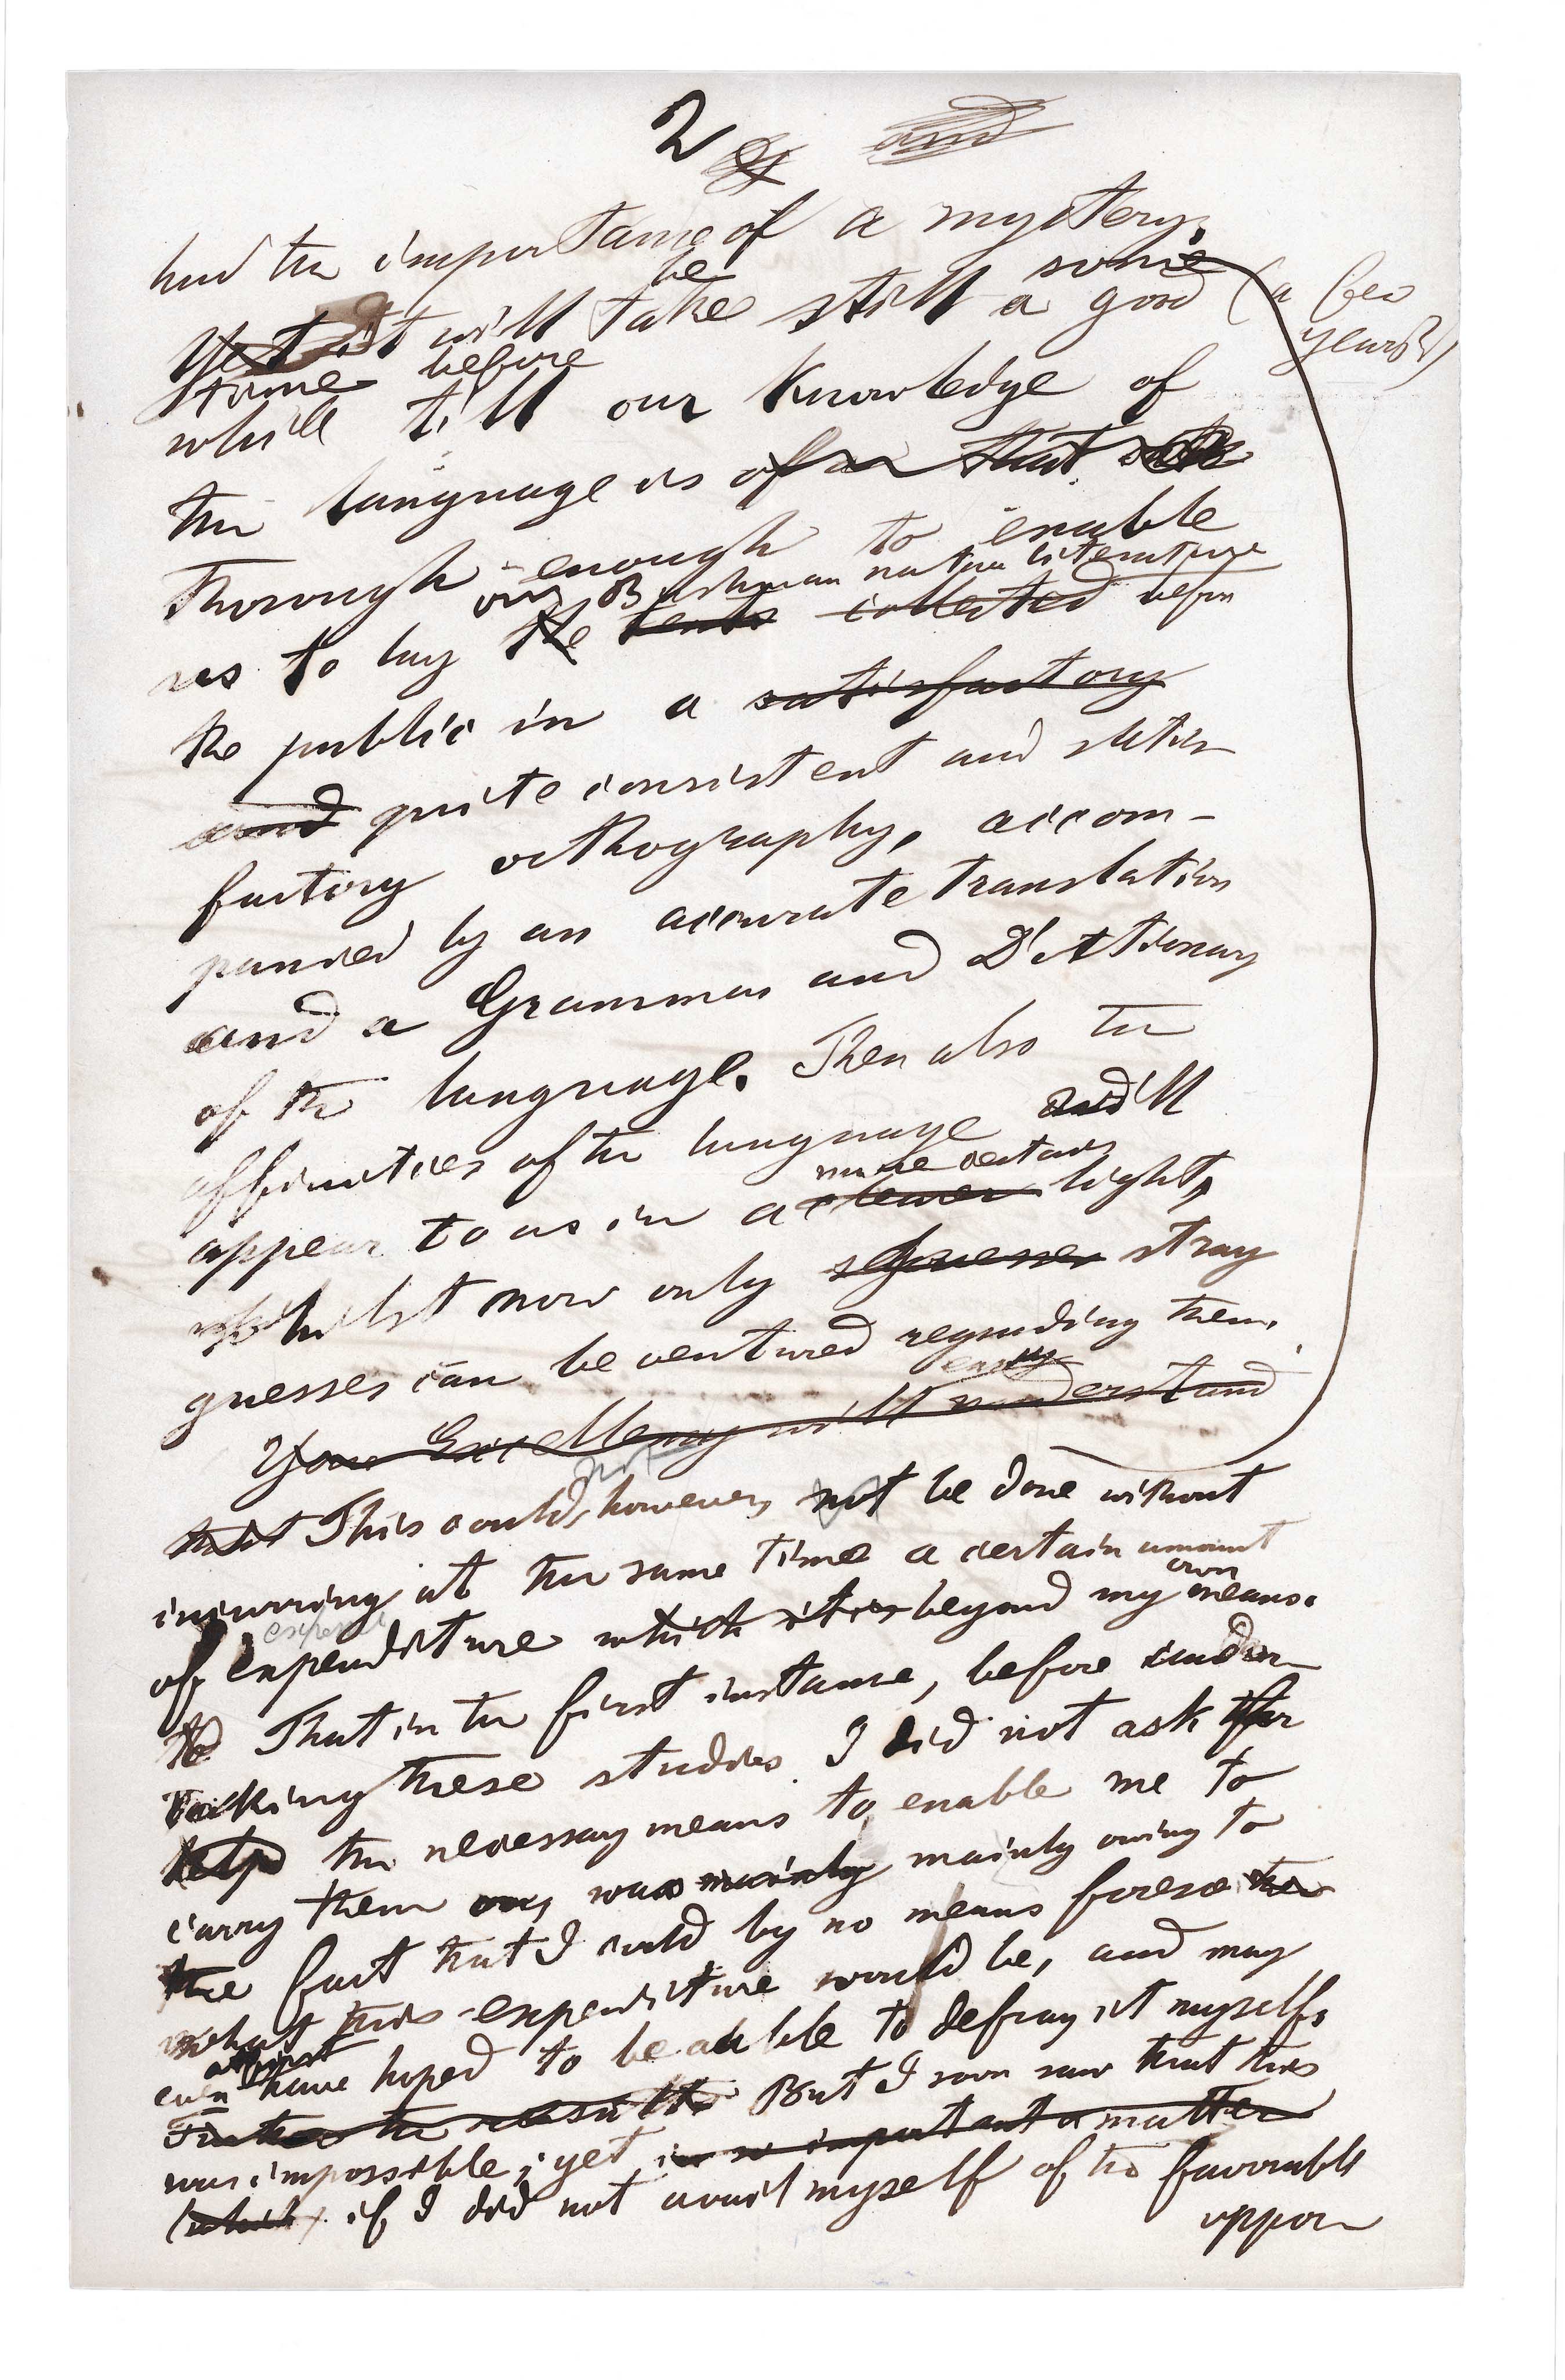 2 and
had the importance of a mystery.
be some
Yet it will take still a good (a few
years?)
time before
while till our knowledge of
the language is of a that
thorough enough to enable
our Bushman native literature
us to lay the texts collected before
the public in a satisfactory
and quite consistent and satis-
factory orthography, accom-
panied by an accurate translation
and a Grammar and Dictionary
of the language. Then also the
affinities of the language will
more certain
appear to us in a clearer light,
whilst now only guesses stray
guesses can be ventured regarding them.
easily
Your Excellency will understand
not
that This could, however, not be done without
incurring at the same time a certain amount
own
of expenditure which it is beyond my means.
That in the first instance, before under-
taking these studies I did not ask for
help the necessary means to enable me to
carry them on, was mainly mainly owing to
the fact that I could by no means foresee
what this expenditure would be, and may
at first
even have hoped to be able to defray it myself.
But I soon saw that this
was impossible; yet in so important a matter
(which if I did not avail myself of the favourable
oppor-